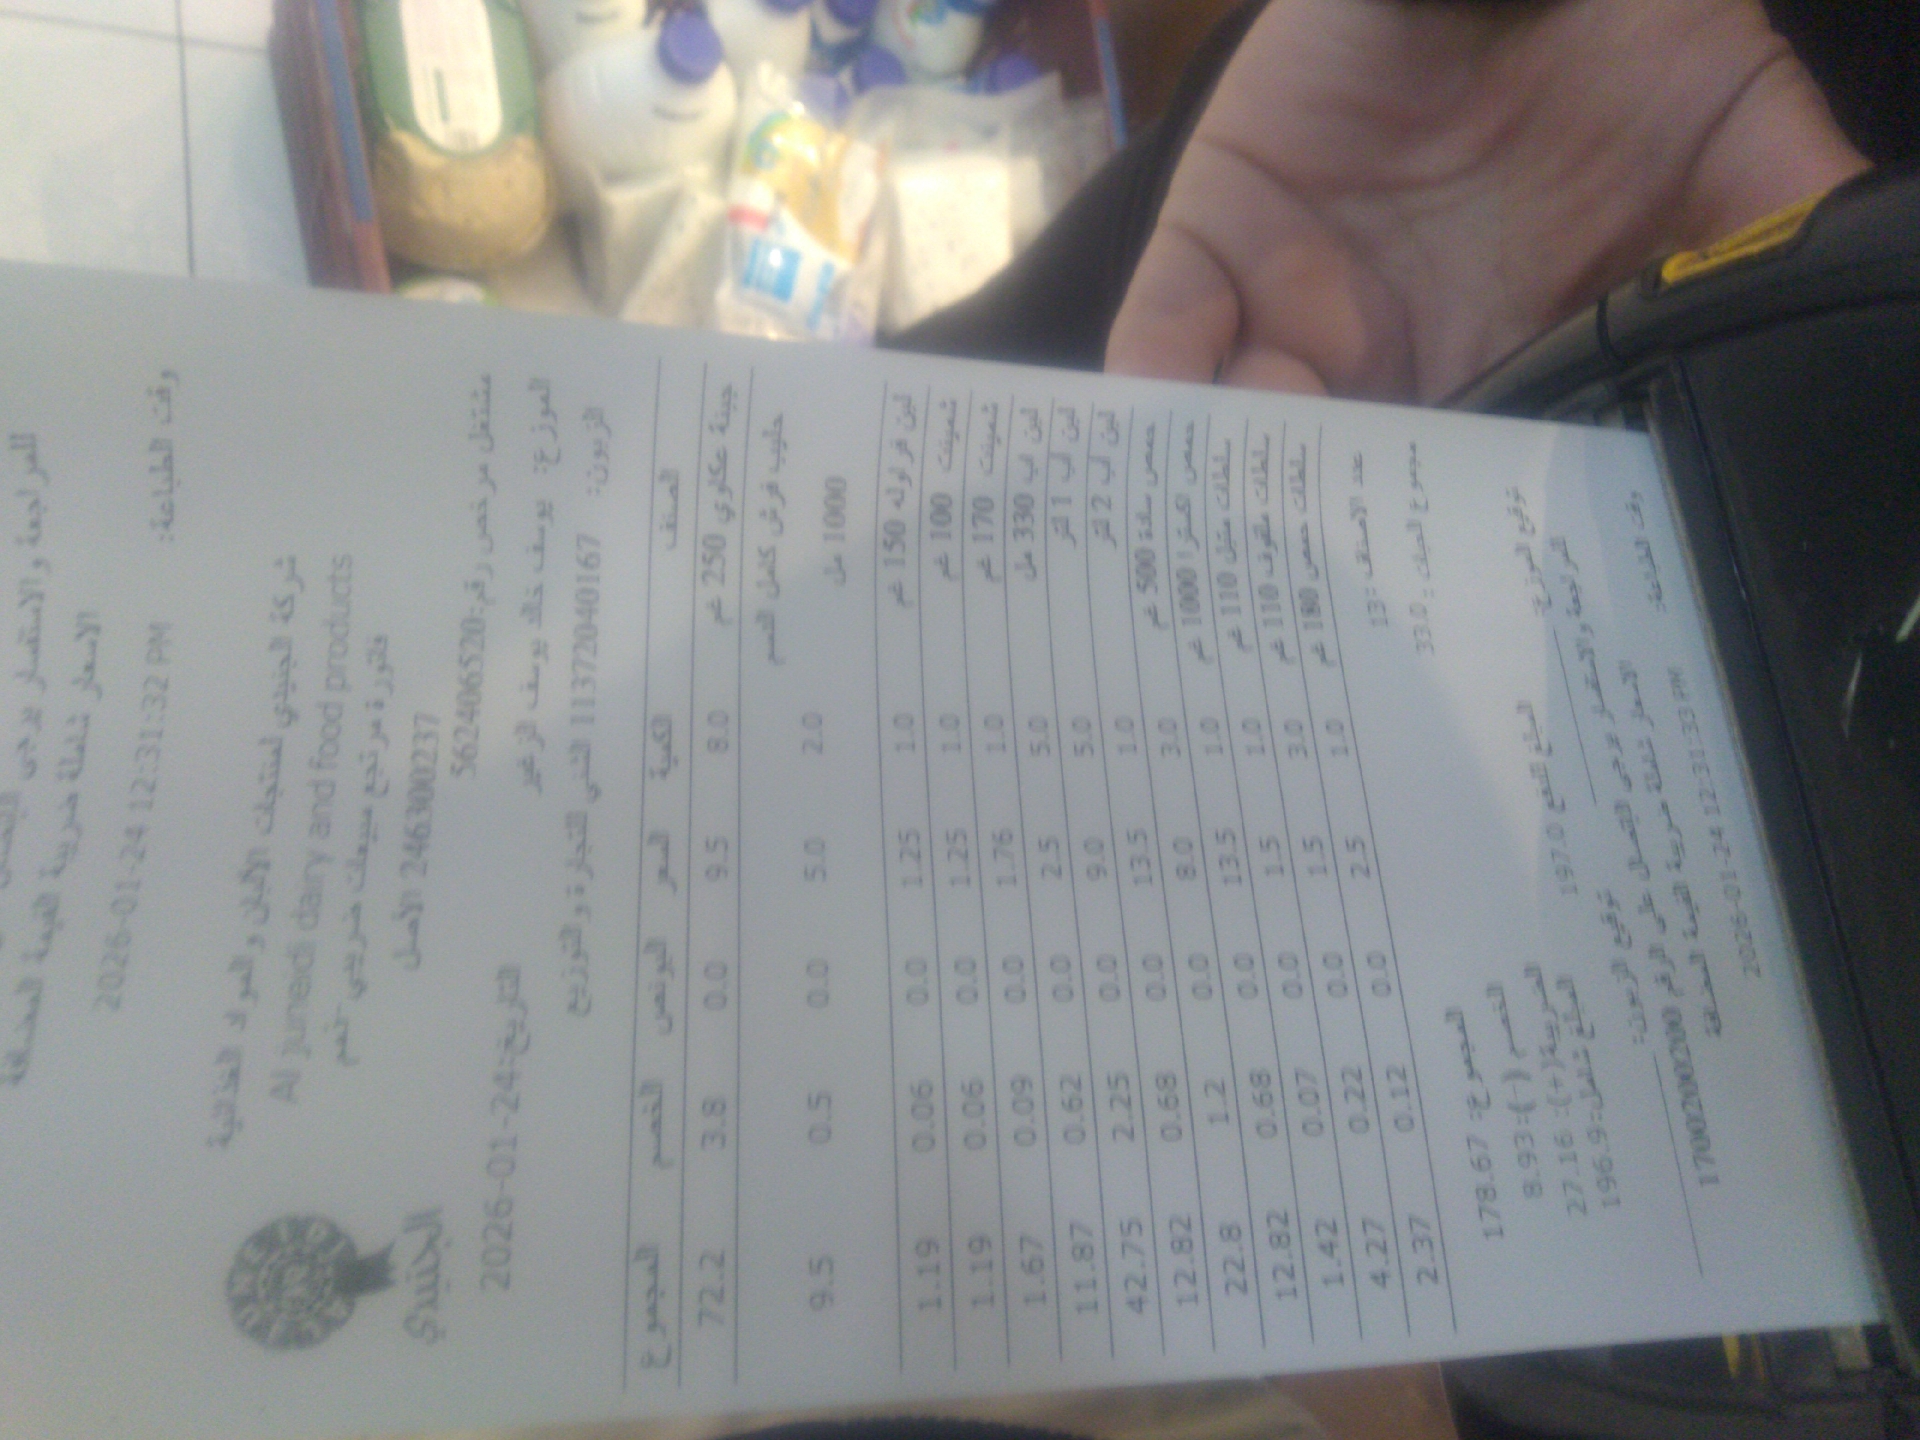 للمراجعة والاستفسار يرجى
الاسعار شاملة ضريبة القيمة المضافة
وقت الطباعة: 2026-01-24 12:31:32 PM
شركة الجنيدي لمنتجات الألبان والمواد الغذائية
Al juneidi dairy and food products
فاتورة مرتجع مبيعات ضريبي -نعم
246300237 الأصل
الجنيدي
مشتغل مرخص رقم:562406520
التاريخ:2026-01-24
الموزع: يوسف خالد يوسف الزغير
الزبون: 1113720401167 الشني التجارة والتوزيع
الصنف الكمية السعر البونص الخصم المجموع
جبنة عكاوي 250 غم 8.0 9.5 0.0 3.8 72.2
حليب فرش كامل الدسم 1000 مل 2.0 5.0 0.0 0.5 9.5
لبن فراوله 150 غم 1.0 1.25 0.0 0.06 1.19
شمينت 100 غم 1.0 1.25 0.0 0.06 1.19
شمينت 170 غم 1.0 1.76 0.0 0.09 1.67
لبن اب 330 مل 5.0 2.5 0.0 0.62 11.87
لبن اب 1 لتر 5.0 9.0 0.0 2.25 42.75
لبن اب 2 لتر 1.0 13.5 0.0 0.68 12.82
حمص سادة 500 غم 3.0 8.0 0.0 1.2 22.8
حمص اكسترا 1000 غم 1.0 13.5 0.0 0.68 12.82
سلطات متبل 110 غم 1.0 1.5 0.0 0.07 1.42
سلطات ملفوف 110 غم 3.0 1.5 0.0 0.22 4.27
سلطات حمص 180 غم 1.0 2.5 0.0 0.12 2.37
عدد الاصناف :13
المجموع: 178.67
مجموع الحبات : 33.0
الخصم (-): 8.93
الضريبة(+): 27.16
المبلغ شامل: 196.9
المبلغ للدفع 197.0
توقيع الموزع:
توقيع الزبون:
للمراجعة والاستفسار يرجى الاتصال على الرقم 1700200200
الاسعار شاملة ضريبة القيمة المضافة
وقت الطباعة: 2026-01-24 12:31:33 PM